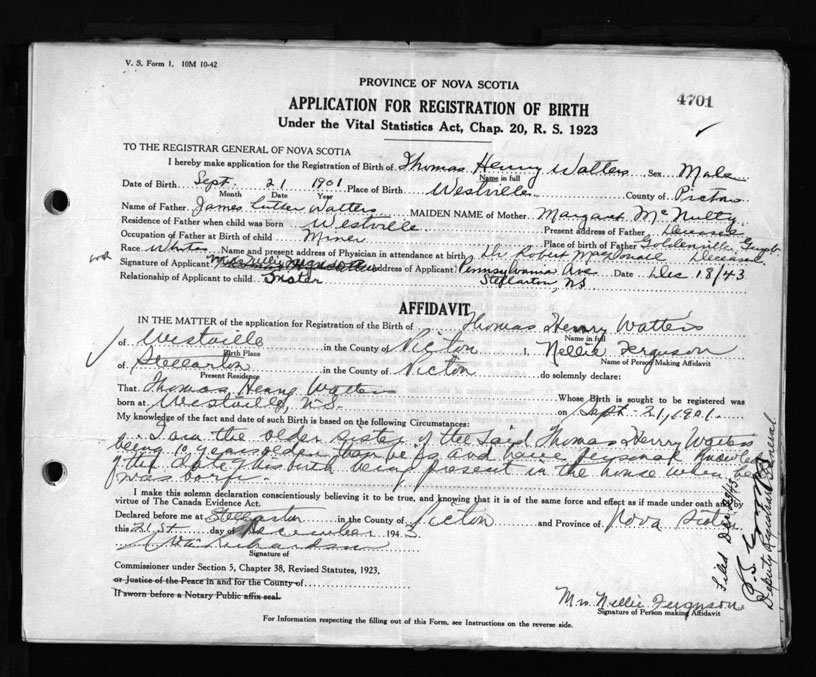 V. S. Form 1. 10M 10-42
PROVINCE OF NOVA SCOTIA
4701
APPLICATION FOR REGISTRATION OF BIRTH
Under the Vital Statistics Act, Chap. 20, R. S. 1923
TO THE REGISTRAR GENERAL OF NOVA SCOTIA
I hereby make application for the Registration of Birth of Thomas Henry Watters Sex Male
Name in full
Date of Birth Sept. 21 1901 Place of Birth Westville County of Pictou
Month Date Year
Name of Father James Luther Watters MAIDEN NAME of Mother Margaret McNulty
Residence of Father when child was born Westville Present address of Father Deceased
Occupation of Father at Birth of child Miner Place of birth of Father Goldenville, Guysb
Race White Name and present address of Physician in attendance at birth Dr Robert MacDonald Deceased
Signature of Applicant Mrs Nellie Ferguson address of Applicant Pennsylvania Ave Date Dec 18/43
Relationship of Applicant to child Sister Stellarton, NS
AFFIDAVIT
IN THE MATTER of the application for Registration of the Birth of Thomas Henry Watters
Name in full
of Westville in the County of Pictou I, Nellie Ferguson
Birth Place Name of Person Making Affidavit
of Stellarton in the County of Pictou do solemnly declare:
Present Residence
That Thomas Henry Watters Whose Birth is sought to be registered was
born at Westville, N.S. on Sept. 21, 1901.
My knowledge of the fact and date of such Birth is based on the following Circumstances:
I am the older sister of the said Thomas Henry Watters
being 10 years older than he is and have personal knowledge
of the date of his birth being present in the house when he
was born.
I make this solemn declaration conscientiously believing it to be true, and knowing that it is of the same force and effect as if made under oath and by
virtue of The Canada Evidence Act.
Declared before me at Stellarton in the County of Pictou and Province of Nova Scotia
this 21st day of December 1943
Richardson
Signature of
Commissioner under Section 5, Chapter 38, Revised Statutes, 1923,
or Justice of the Peace in and for the County of
If sworn before a Notary Public affix seal.
Mrs Nellie Ferguson
Signature of Person making Affidavit
For Information respecting the filling out of this Form, see Instructions on the reverse side.
Filed Dec.
Deputy Registrar General